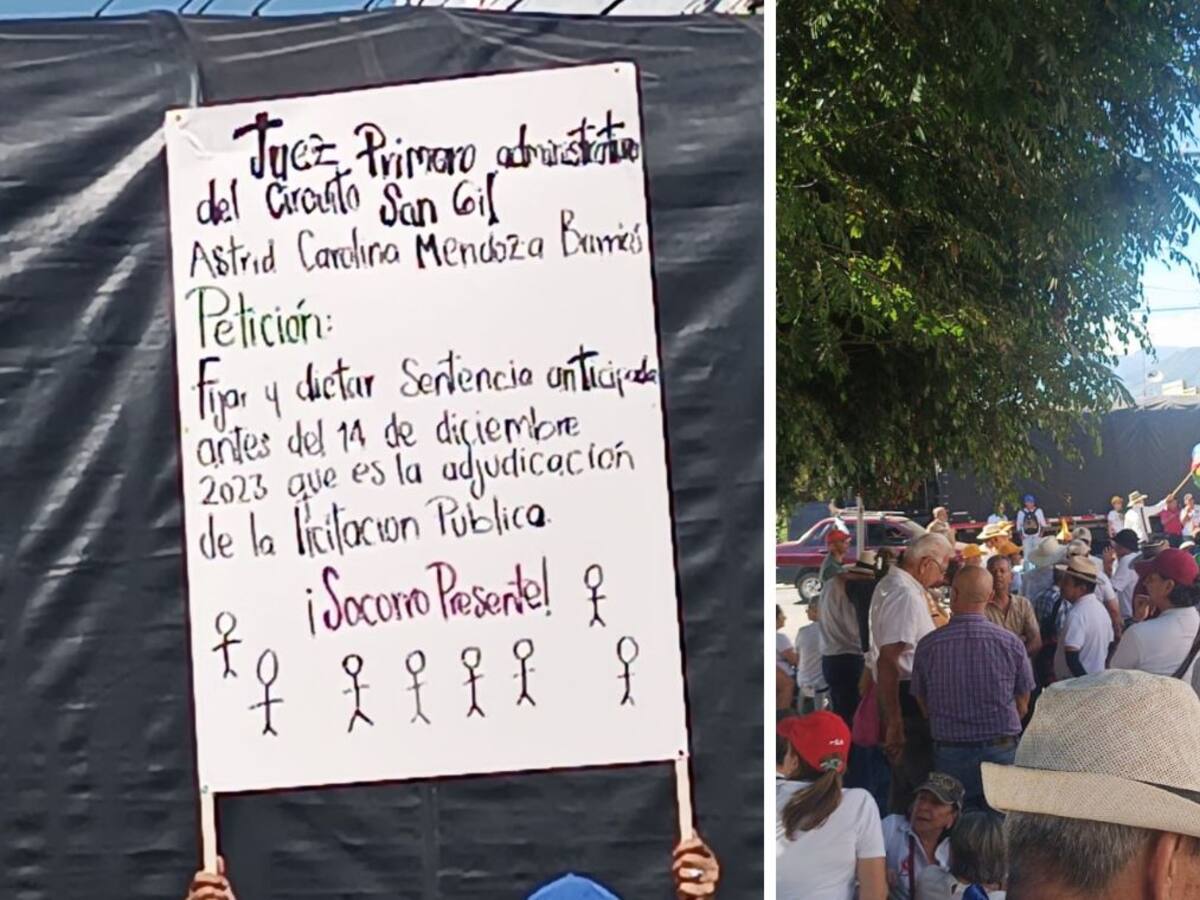 Juez Primero administrativo
del Circuito San Gil
Astrid Carolina Mendoza Barrios
Petición:
Fijar y dictar Sentencia anticipada
antes del 14 de diciembre
2023 que es la adjudicación
de la licitacion Publica.
¡Socorro Presente!